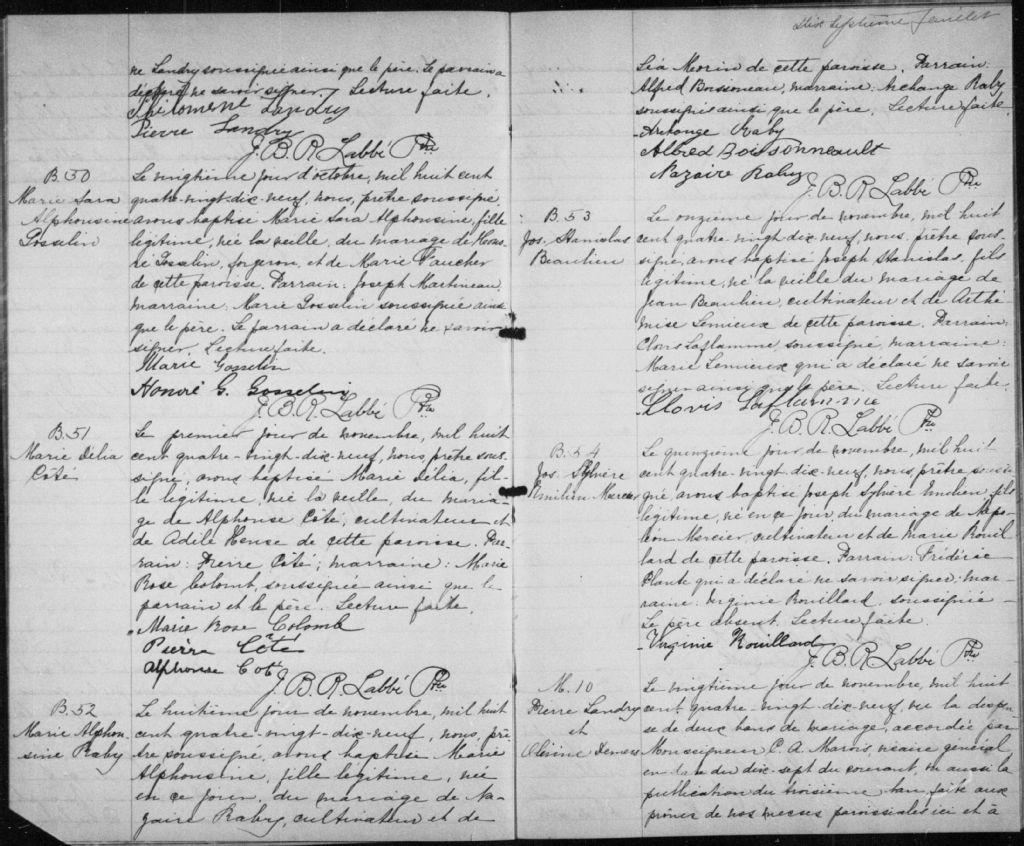 Dix septième feuillet
ne Landry soussignée ainsi que le père. Le parrain a
déclaré ne savoir signer. Lecture faite.
Philoment Landry
Pierre Landry
J. B. R. Labbé Ptre
B. 50
Marie Sara
Alphonsine
Gosselin
Le vingtième jour d'octobre, mil huit cent
quatre-vingt-dix-neuf, nous, prêtre soussigné,
avons baptisé Marie Sara Alphonsine, fille
légitime, née la veille, du mariage de Hono-
ré Gosselin, forgeron, et de Marie Faucher
de cette paroisse. Parrain: Joseph Martineau,
marraine: Marie Gosselin soussignée ainsi
que le père. Le parrain a déclaré ne savoir
signer. Lecture faite.
Marie Gosselin
Honoré G. Gosselin
J. B. R. Labbé Ptre
B. 51
Marie Délia
Côté
Le premier jour de novembre, mil huit
cent quatre-vingt-dix-neuf, nous, prêtre sous-
signé, avons baptisé Marie Délia, fil-
le légitime, née la veille, du maria-
ge de Alphonse Côté, cultivateur et
de Adile Hense de cette paroisse. Par-
rain: Pierre Côté; marraine: Marie
Rose Colomb soussignée ainsi que le
parrain et le père. Lecture faite.
Marie Rose Colomb
Pierre Côté
Alphonse Coté
J. B. R. Labbé Ptre
B. 52
Marie Alphon-
sine Raby
Le huitième jour de novembre, mil huit
cent quatre-vingt-dix-neuf, nous, prê-
tre soussigné, avons baptisé Marie
Alphonsine, fille légitime, née
en ce jour, du mariage de Na-
zaire Raby, cultivateur et de
Léa Morin de cette paroisse. Parrain:
Alfred Boissoneau, marraine: Archange Raby
soussignés ainsi que le père. Lecture faite.
Archange Raby
Alfred Boissonneault
Nazaire Raby
J. B. R. Labbé Ptre
B. 53
Jos. Stanislas
Beaulieu
Le onzième jour de novembre, mil huit
cent quatre-vingt-dix-neuf, nous, prêtre sous-
signé, avons baptisé Joseph Stanislas, fils
légitime, né la veille du mariage de
Jean Beaulieu, cultivateur et de Arthé-
mise Lemieux de cette paroisse. Parrain:
Clovis Laflamme, soussigné, marraine:
Marie Lemieux qui a déclaré ne savoir
signer ainsi que le père. Lecture faite.
Clovis Laflamme
J. B. R. Labbé Ptre
B. 54
Jos. Sylvère
Emilien Mercier
Le quinzième jour de novembre, mil huit
cent quatre-vingt-dix-neuf, nous, prêtre soussi-
gné, avons baptisé Joseph Sylvère Emilien, fils
légitime, né en ce jour, du mariage de Napo-
léon Mercier, cultivateur et de Marie Rouil-
lard de cette paroisse. Parrain: Frédéric
Plante qui a déclaré ne savoir signer; mar-
raine: Virginie Rouillard, soussignée
Le père absent. Lecture faite.
Virginie Rouillard
J. B. R. Labbé Ptre
M. 10
Pierre Landry
et
Demers
Le vingtième jour de novembre, mil huit
cent quatre-vingt-dix-neuf, vu la dispen-
se de deux bans de mariage, accordée par
Monseigneur C. A. Marois vicaire général
en date du dix-sept du courant, vu aussi la
publication du troisième ban faite aux
prônes de nos messes paroissiales ici et à